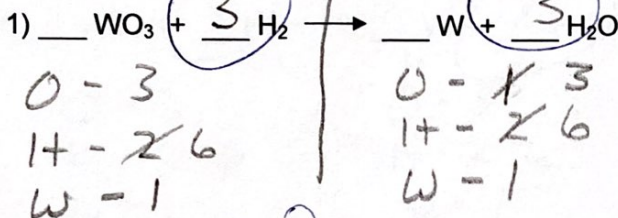 1) ___ WO₃ + 3 H₂ → ___ W + 3 H₂O
O - 3
H - 2 6
W - 1
O - 1 3
H - 2 6
W - 1